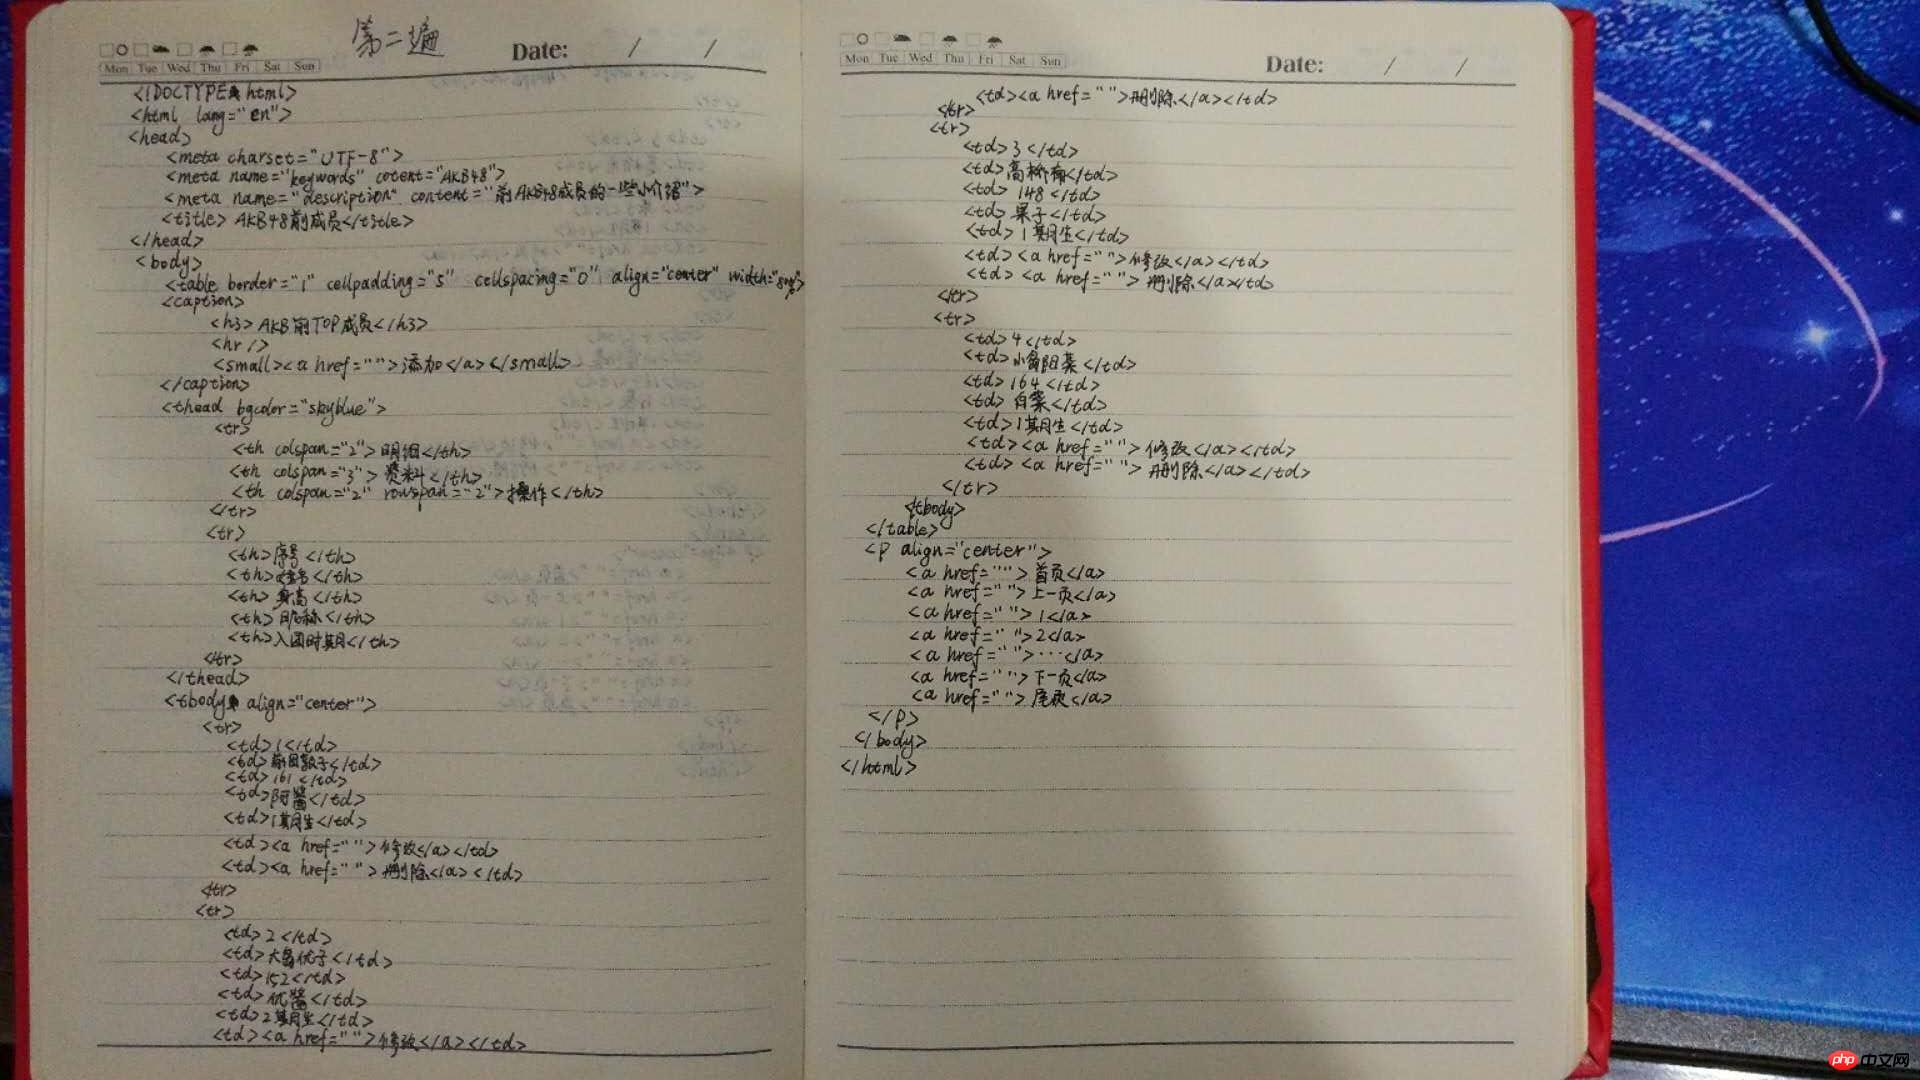 第二遍
Date: / /
Mon Tue Wed Thu Fri Sat Sun
<!DOCTYPE html>
<html lang="en">
<head>
<meta charset="UTF-8">
<meta name="keywords" cotent="AKB48">
<meta name="description" content="前AKB48成员的一些小介绍">
<title>AKB48前成员</title>
</head>
<body>
<table border="1" cellpadding="5" cellspacing="0" align="center" width="80%">
<caption>
<h3>AKB前TOP成员</h3>
<hr/>
<small><a href="">添加</a></small>
</caption>
<thead bgcolor="skyblue">
<tr>
<th colspan="2">明细</th>
<th colspan="3">资料</th>
<th colspan="2" rowspan="2">操作</th>
</tr>
<tr>
<th>序号</th>
<th>姓名</th>
<th>身高</th>
<th>昵称</th>
<th>入团时期</th>
</tr>
</thead>
<tbody align="center">
<tr>
<td>1</td>
<td>前田敦子</td>
<td>161</td>
<td>阿酱</td>
<td>1期生</td>
<td><a href="">修改</a></td>
<td><a href="">删除</a></td>
</tr>
<tr>
<td>2</td>
<td>大岛优子</td>
<td>152</td>
<td>优酱</td>
<td>2期生</td>
<td><a href="">修改</a></td>
Mon Tue Wed Thu Fri Sat Sun
Date: / /
<td><a href="">删除</a></td>
</tr>
<tr>
<td>3</td>
<td>高桥南</td>
<td>148</td>
<td>果子</td>
<td>1期生</td>
<td><a href="">修改</a></td>
<td><a href="">删除</a></td>
</tr>
<tr>
<td>4</td>
<td>小 阳菜</td>
<td>164</td>
<td>白菜</td>
<td>1期生</td>
<td><a href="">修改</a><td>
<td><a href="">删除</a></td>
</tr>
<tbody>
</table>
<p align="center">
<a href="">首页</a>
<a href="">上一页</a>
<a href="">1</a>
<a href="">2</a>
<a href="">···</a>
<a href="">下一页</a>
<a href="">尾页</a>
</p>
</body>
</html>
php 中文网